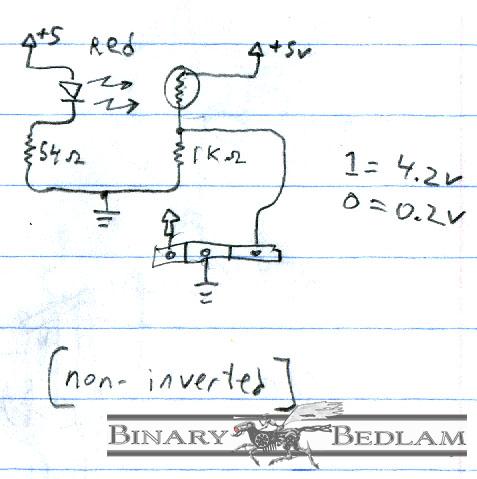 +5
Red
+5v
54Ω
1KΩ
1 = 4.2v
0 = 0.2v
[non-inverted]
BINARY BEDLAM